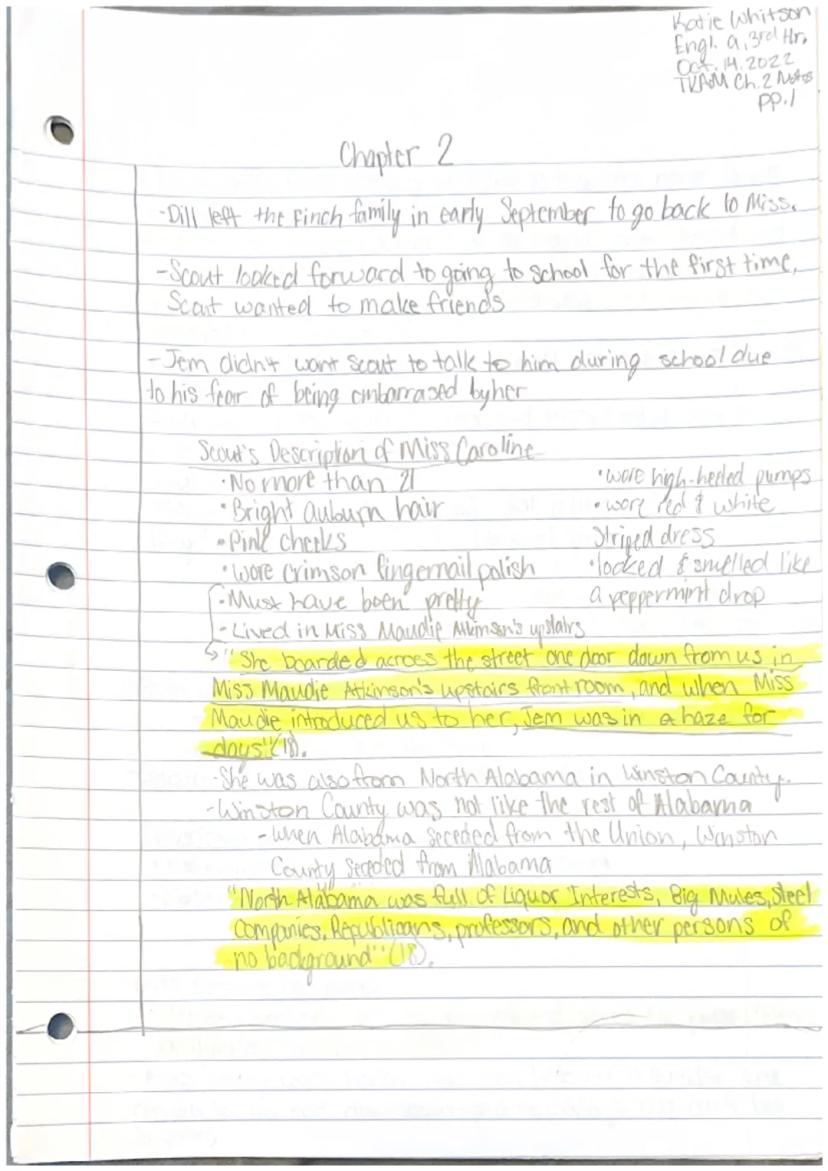 Katie Whitson
Engl. 9, 3rd Hr.
Oct. 14. 2022
TKAM Ch. 2 Notes
pp. 1
Chapter 2
-Dill left the Finch family in early September to go back to Miss.
-Scout looked forward to going to school for the first time,
Scout wanted to make friends
-Jem didn't want Scout to talk to him during school due
to his fear of being embarrased by her
Scout's Description of Miss Caroline
•No more than 21
•Bright auburn hair
•Pink cheeks
•wore crimson fingernail polish
-Must have been pretty
-Lived in Miss Maudie Atkinson's upstairs
•wore high-heeled pumps
•wore red & white
striped dress
•looked & smelled like
a peppermint drop
"She boarded across the street one door down from us in
Miss Maudie Atkinson's upstairs front room, and when Miss
Maudie introduced us to her, Jem was in a haze for
days" (18).
-She was also from North Alabama in Winston County.
-Winston County was not like the rest of Alabama
-when Alabama seceded from the Union, Winston
County seceded from Alabama
"North Alabama was full of Liquor Interests, Big Mules, steel
companies, Republicans, professors, and other persons of
no background" (18).